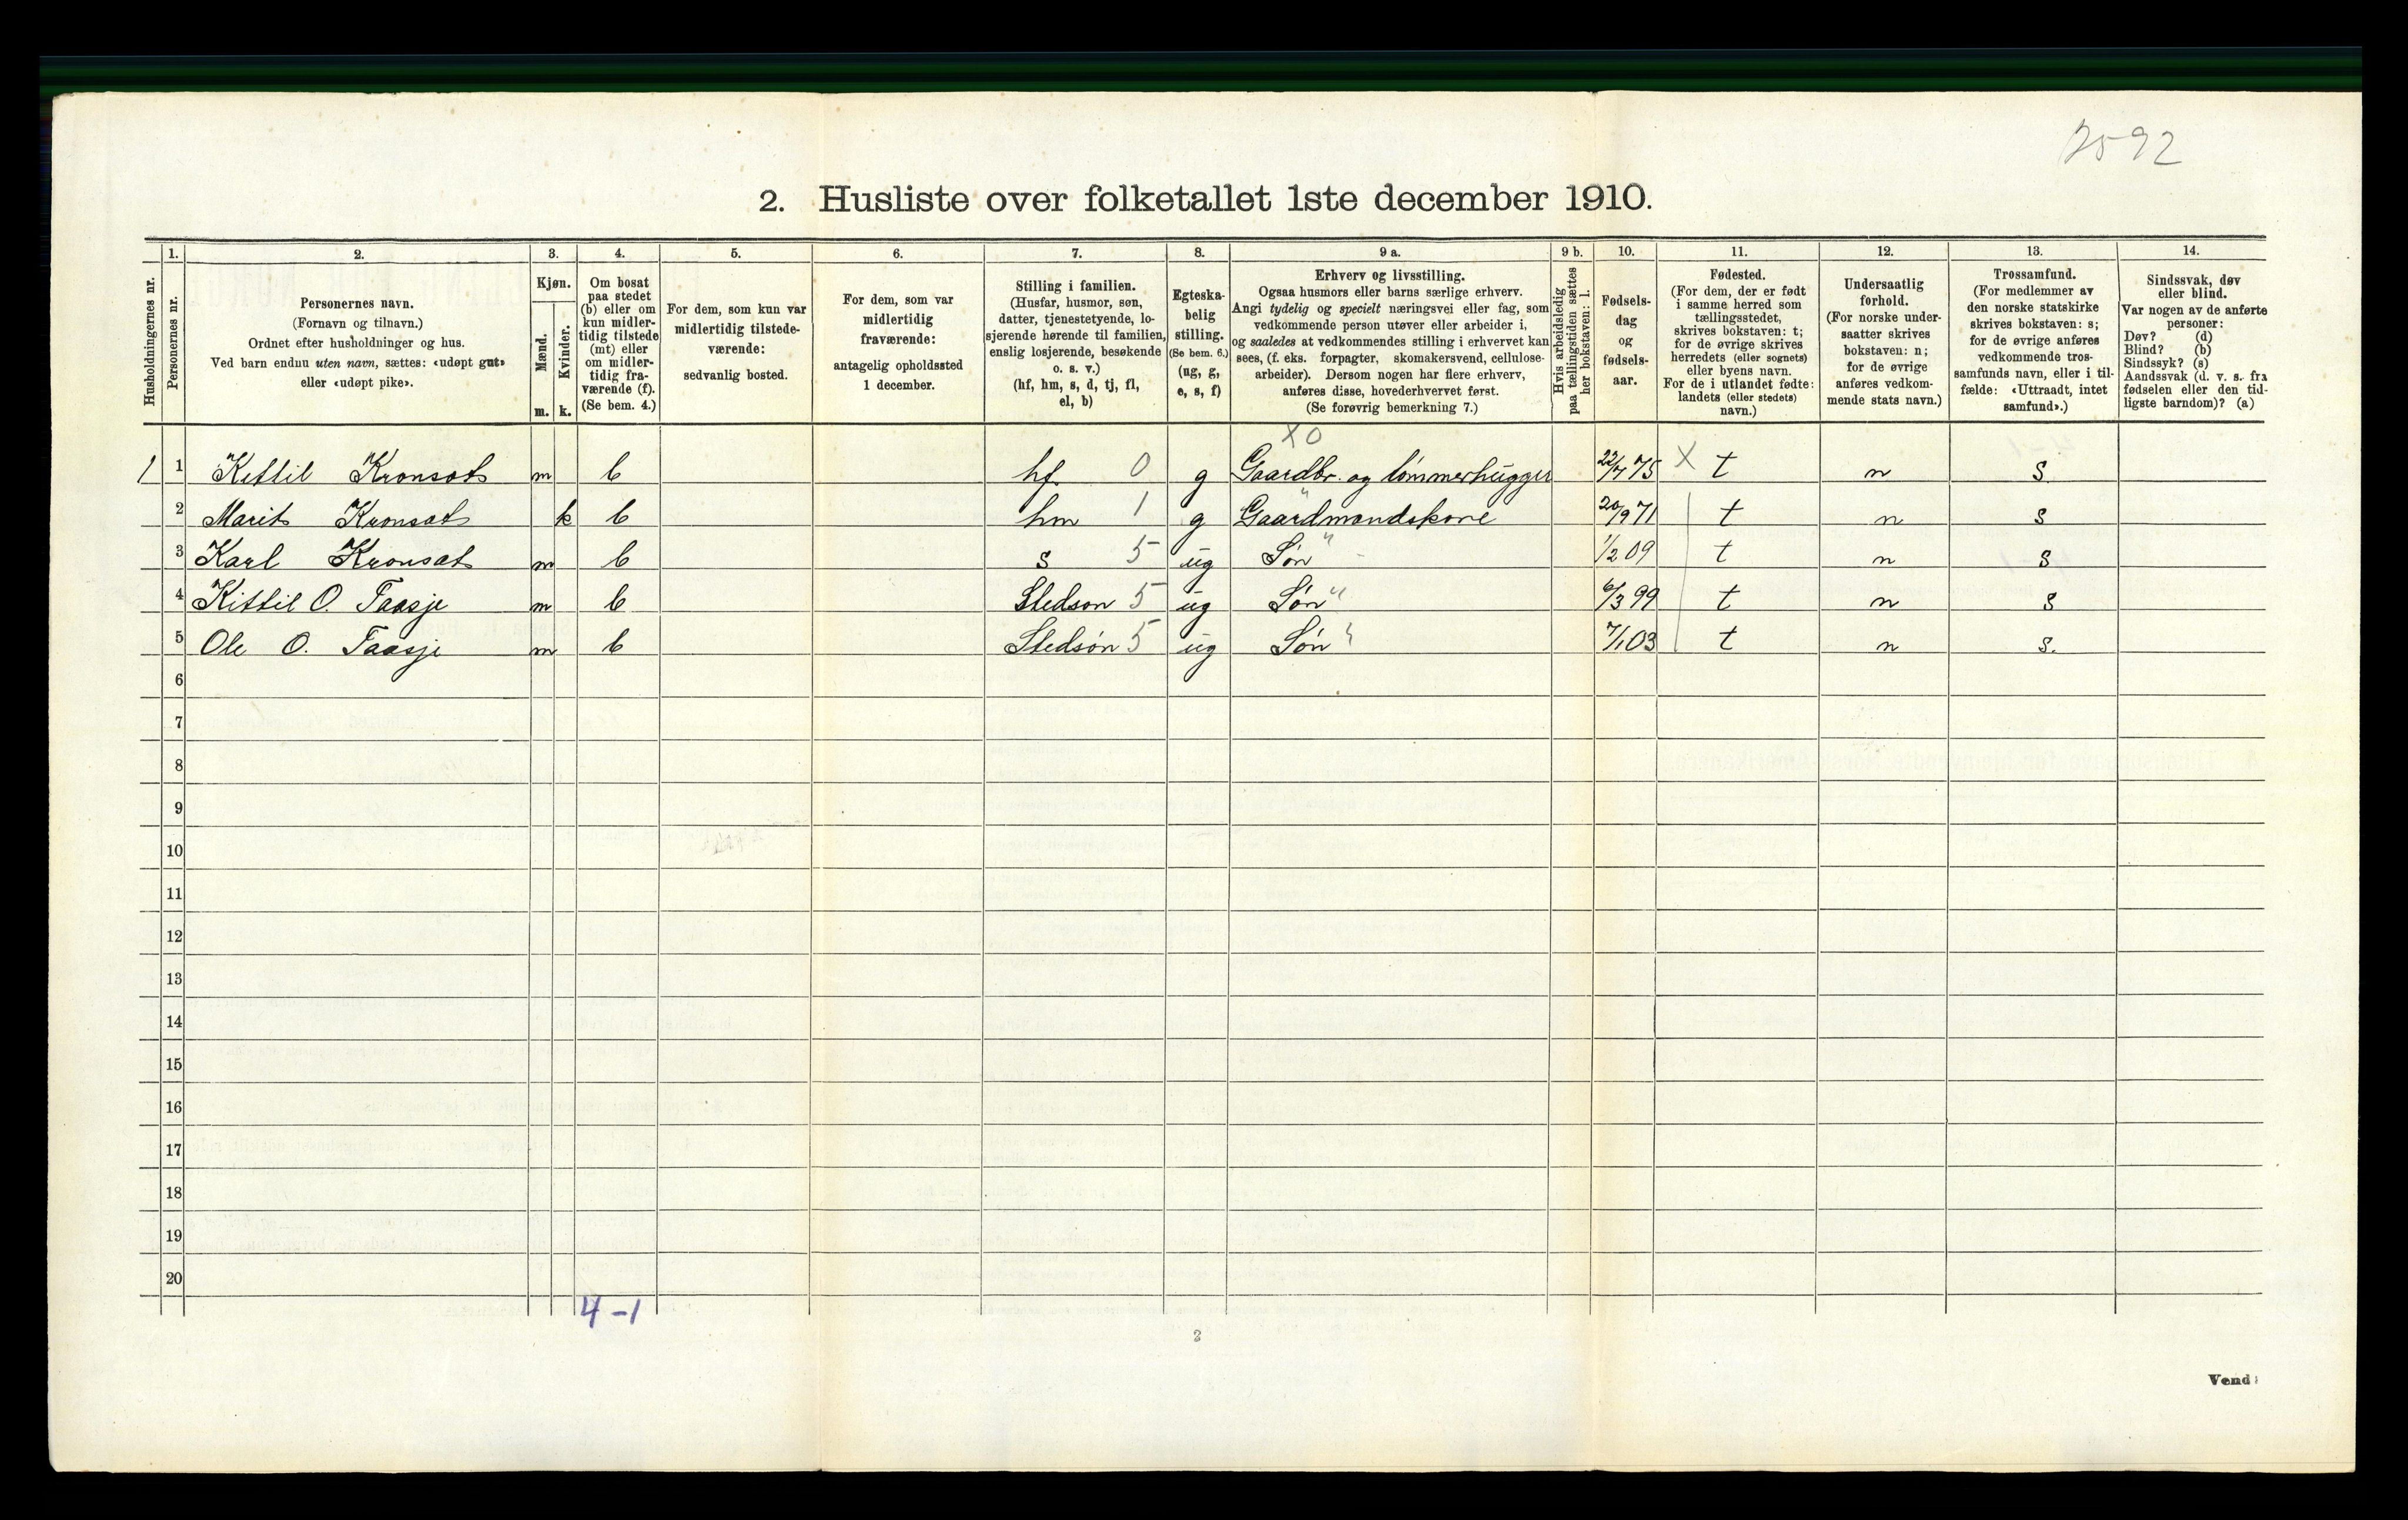 2592
2. Husliste over folketallet 1ste december 1910.
Husholdningernes nr.
1.
Personernes nr.
2.
Personernes navn.
(Fornavn og tilnavn.)
Ordnet efter husholdninger og hus.
Ved barn endnu uten navn, sættes: «udøpt gut»
eller «udøpt pike».
3.
Kjøn.
Mænd.
Kvinder.
m. k.
4.
Om bosat
paa stedet
(b) eller om
kun midler-
tidig tilstede
(mt) eller
om midler-
tidig fra-
værende (f).
(Se bem. 4.)
5.
For dem, som kun var
midlertidig tilstede-
værende:
sedvanlig bosted.
6.
For dem, som var
midlertidig
fraværende:
antagelig opholdssted
1 december.
7.
Stilling i familien.
(Husfar, husmor, søn,
datter, tjenestetyende, lo-
sjerende hørende til familien,
enslig losjerende, besøkende
o. s. v.)
(hf, hm, s, d, tj, fl,
el, b)
8.
Egteska-
belig
stilling.
(Se bem. 6.)
(ug, g,
e, s, f)
9 a.
Erhverv og livsstilling.
Ogsaa husmors eller barns særlige erhverv.
Angi tydelig og specielt næringsvei eller fag, som
vedkommende person utøver eller arbeider i,
og saaledes at vedkommendes stilling i erhvervet kan
sees, (f. eks. forpagter, skomakersvend, cellulose-
arbeider). Dersom nogen har flere erhverv,
anføres disse, hovederhvervet først.
(Se forøvrig bemerkning 7.)
9 b.
Hvis arbeidsledig
paa tællingstiden sættes
her bokstaven: l.
10.
Fødsels-
dag
og
fødsels-
aar.
11.
Fødested.
(For dem, der er født
i samme herred som
tællingsstedet,
skrives bokstaven: t;
for de øvrige skrives
herredets (eller sognets)
eller byens navn.
For de i utlandet fødte:
landets (eller stedets)
navn.)
12.
Undersaatlig
forhold.
(For norske under-
saatter skrives
bokstaven: n;
for de øvrige
anføres vedkom-
mende stats navn.)
13.
Trossamfund.
(For medlemmer av
den norske statskirke
skrives bokstaven: s;
for de øvrige anføres
vedkommende tros-
samfunds navn, eller i til-
fælde: «Uttraadt, intet
samfund».)
14.
Sindssvak, døv
eller blind.
Var nogen av de anførte
personer:
Døv? (d)
Blind? (b)
Sindssyk? (s)
Aandssvak (d. v. s. fra
fødselen eller den tid-
ligste barndom)? (a)
X 0
1 1 Kittil Kronsat m b hf 0 g Gaardbr. og tømmerhugger 22/7 75 X t n s.
2 Marit Kronsat k b hm 1 g Gaardmandskone 20/9 71 t n s
3 Karl Kronsat m b s 5 ug Søn " 1/2 09 t n s
4 Kittil O. Faasje m b Stedson 5 ug Søn " 6/3 99 t n s
5 Ole O. Faasje m b Stedsøn 5 ug Søn " 7/1 03 t n s.
6
7
8
9
10
11
12
13
14
15
16
17
18
19
20
4-1
2
Vend!